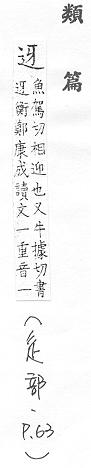 類篇
迓
魚駕切相迎也又牛據切書
迓衡鄭康成讀文一重音一
(辵部、P.63)